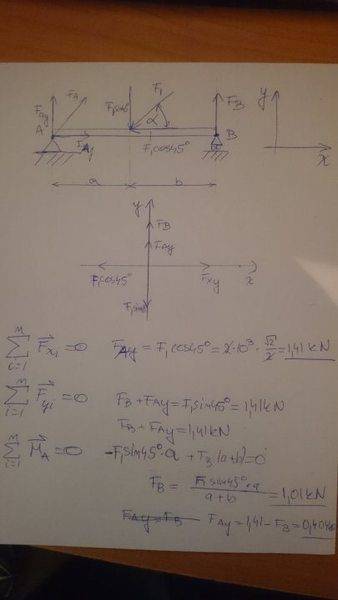 F_Ay F_A F₁sin45° F₁ F_B y
A α B
F_Ay F₁cos45° x
a b
y
F_B
F_Ay
F₁cos45° F_xy x
F₁sin45°
∑ F⃗xi = 0 F_Ay = F₁cos45° = 2·10³ · √2/2 = 1,41 kN
∑ F⃗yi = 0 F_B + F_Ay = F₁sin45° = 1,41kN
F_B + F_Ay = 1,41kN
∑ M⃗_A = 0 -F₁sin45°·a + F_B (a+b) = 0
F_B = F₁sin45°·a / a+b = 1,01kN
F_Ay = F_B F_Ay = 1,41 - F_B = 0,404kN